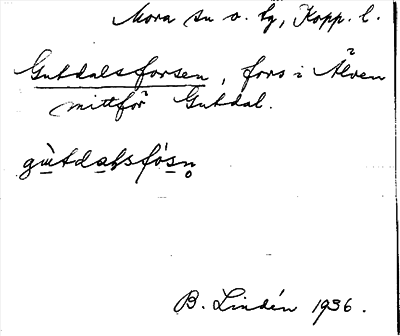 Mora sn o. tg, Kopp. l.
Gutdalsforsen, fors i Älven
mittför Gutdal.
gùtdaɫsfósn̥
B. Lindén 1936.